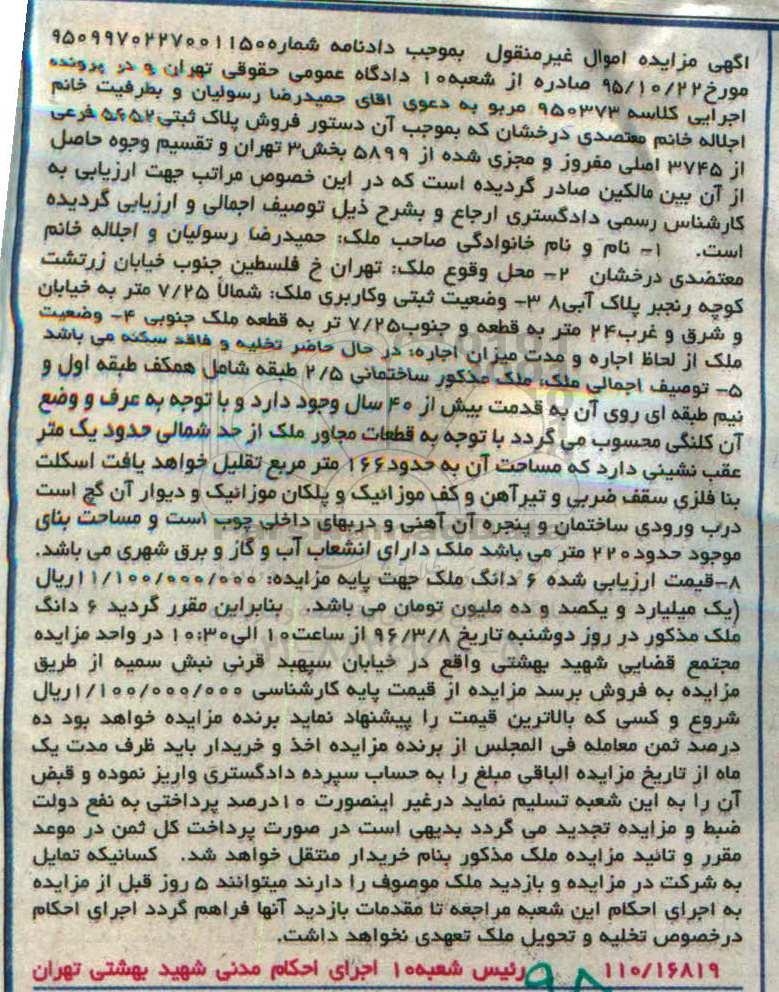 اگهی مزایده اموال غیرمنقول بموجب دادنامه شماره۹۵۰۹۹۷۰۲۲۷۰۰۱۱۵۰
مورخ۹۵/۱۰/۲۲ صادره از شعبه۱۰ دادگاه عمومی حقوقی تهران و در پرونده
اجرایی کلاسه ۹۵۰۳۷۳ مربو به دعوی اقای حمیدرضا رسولیان و بطرفیت خانم
اجلاله خانم معتصدی درخشان که بموجب آن دستور فروش پلاک ثبتی۵۶۵۲ فرعی
از ۳۷۴۵ اصلی مفروز و مجزی شده از ۵۸۹۹ بخش۳ تهران و تقسیم وجوه حاصل
از آن بین مالکین صادر گردیده است که در این خصوص مراتب جهت ارزیابی به
کارشناس رسمی دادگستری ارجاع و بشرح ذیل توصیف اجمالی و ارزیابی گردیده
است. ۱- نام و نام خانوادگی صاحب ملک: حمیدرضا رسولیان و اجلاله خانم
معتضدی درخشان ۲- محل وقوع ملک: تهران خ فلسطین جنوب خیابان زرتشت
کوچه رنجبر پلاک آبی۸ ۳- وضعیت ثبتی وکاربری ملک: شمالاً ۷/۲۵ متر به خیابان
و شرق و غرب۲۴ متر به قطعه و جنوب۷/۲۵ تر به قطعه ملک جنوبی ۴- وضعیت
ملک از لحاظ اجاره و مدت میزان اجاره: در حال حاضر تخلیه و فاقد سکنه می باشد
۵- توصیف اجمالی ملک، ملک مذکور ساختمانی ۲/۵ طبقه شامل همکف طبقه اول و
نیم طبقه ای روی آن به قدمت بیش از ۴۰ سال وجود دارد و با توجه به عرف و وضع
آن کلنگی محسوب می گردد با توجه به قطعات مجاور ملک از حد شمالی حدود یک متر
عقب نشینی دارد که مساحت آن به حدود۱۶۶ متر مربع تقلیل خواهد یافت اسکلت
بنا فلزی سقف ضربی و تیرآهن و کف موزائیک و پلکان موزانیک و دیوار آن گچ است
درب ورودی ساختمان و پنجره آن آهنی و دربهای داخلی چوب است و مساحت بنای
موجود حدود۲۲۰ متر می باشد ملک دارای انشعاب آب و گاز و برق شهری می باشد.
۸-قیمت ارزیابی شده ۶ دانگ ملک جهت پایه مزایده: ۱۱/۱۰۰/۰۰۰/۰۰۰ریال
(یک میلیارد و یکصد و ده ملیون تومان می باشد. بنابراین مقرر گردید ۶ دانگ
ملک مذکور در روز دوشنبه تاریخ ۹۶/۳/۸ از ساعت۱۰ الی۱۰:۳۰ در واحد مزایده
مجتمع قضایی شهید بهشتی واقع در خیابان سپهبد قرنی نبش سمیه از طریق
مزایده به فروش برسد مزایده از قیمت پایه کارشناسی ۱/۱۰۰/۰۰۰/۰۰۰ریال
شروع و کسی که بالاترین قیمت را پیشنهاد نماید برنده مزایده خواهد بود ده
درصد ثمن معامله فی المجلس از برنده مزایده اخذ و خریدار باید ظرف مدت یک
ماه از تاریخ مزایده الباقی مبلغ را به حساب سپرده دادگستری واریز نموده و قبض
آن را به این شعبه تسلیم نماید درغیر اینصورت ۱۰درصد پرداختی به نفع دولت
ضبط و مزایده تجدید می گردد بدیهی است در صورت پرداخت کل ثمن در موعد
مقرر و تائید مزایده ملک مذکور بنام خریدار منتقل خواهد شد. کسانیکه تمایل
به شرکت در مزایده و بازدید ملک موصوف را دارند میتوانند ۵ روز قبل از مزایده
به اجرای احکام این شعبه مراجعه تا مقدمات بازدید آنها فراهم گردد اجرای احکام
درخصوص تخلیه و تحویل ملک تعهدی نخواهد داشت.
۱۱۰/۱۶۸۱۹ رئیس شعبه۱۰ اجرای احکام مدنی شهید بهشتی تهران